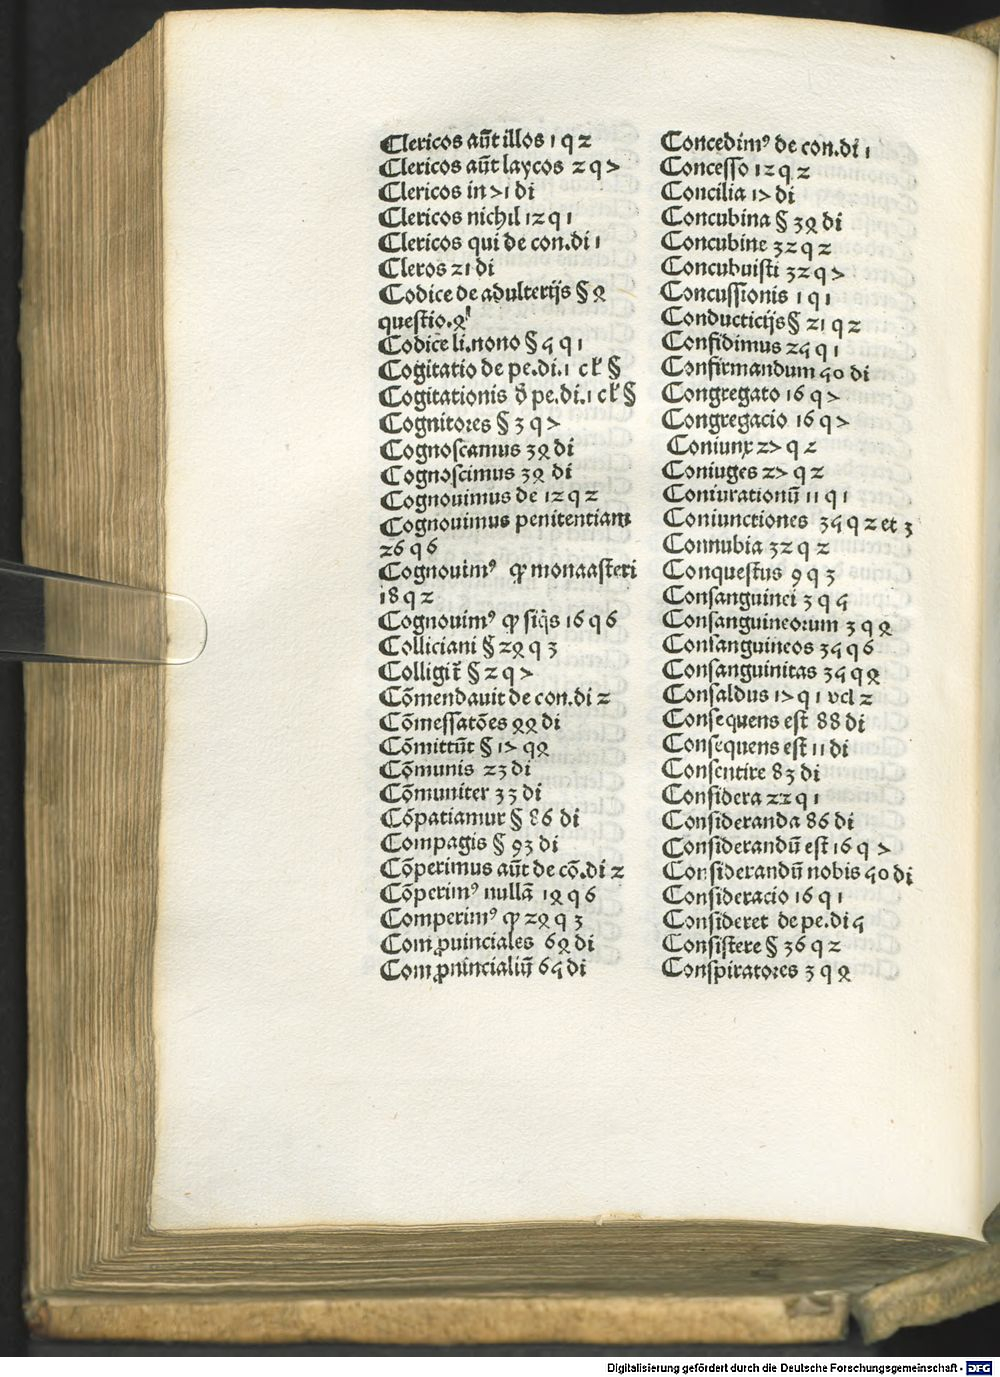 Clericos aūt illos 1 q 2
Clericos aūt laycos 2 q 7
Clericos in 71 di
Clericos nichil 12 q 1
Clericos qui de con.di 1
Cleros 21 di
Codice de adulterijs § 2
questio.
Codice li.nono § 4 q 1
Cogitatio de pe.di.1 § 
Cogitationis đ pe.di.1 §
Cognitores § 3 q 7
Cognoscamus 32 di
Cognoscimus 32 di
Cognouimus de 12 q 2
Cognouimus penitentiam
26 q 6
Cognouimꝰ ꝙ monaasteri
18 q 2
Cognouimꝰ ꝙ 16 q 6
Colliciani § q 3
Colligit̄ § 2 q 7
Cōmendauit de con.di 2
Cōmessatōes di
Cōmittūt § 17
Cōmunis 23 di
Cōmuniter 33 di
Cōpatiamur § 86 di
Compagis § 93 di
Cōperimus aūt de cō.di 2
Cōperimꝰ nullā q 6
Comperimꝰ ꝙ q 3
Comꝓuinciales di
Comꝓuincialiū 64 di
Concedimꝰ de con.di 1
Concesso 12 q 2
Concilia 17 di
Concubina § di
Concubine 32 q 2
Concubuisti 32 q 7
Concussionis 1 q 1
Conducticijs § 21 q 2
Confidimus 24 q 1
Confirmandum 40 di
Congregato 16 q 7
Congregacio 16 q 7
Coniunx 27 q 2
Coniuges 27 q 2
Coniurationū 11 q 1
Coniunctiones 34 q 2 et 3
Connubia 32 q 2
Conquestus 9 q 3
Consanguinei 3 q 4
Consanguineorum 3 q
Consanguineos 34 q 6
Consanguinitas 34 q
Consaldus 17 q 1 vel 2
Consequens est 88 di
Consequens est 11 di
Consentire 83 di
Considera 22 q 1
Consideranda 86 di
Considerandū est 16 q 7
Considerandū nobis 40 di
Consideracio 16 q 1
Consideret de pe.di 4
Consistere § 36 q 2
Conspiratores 3 q
Digitalisierung gefördert durch die Deutsche Forschungsgemeinschaft - DFG